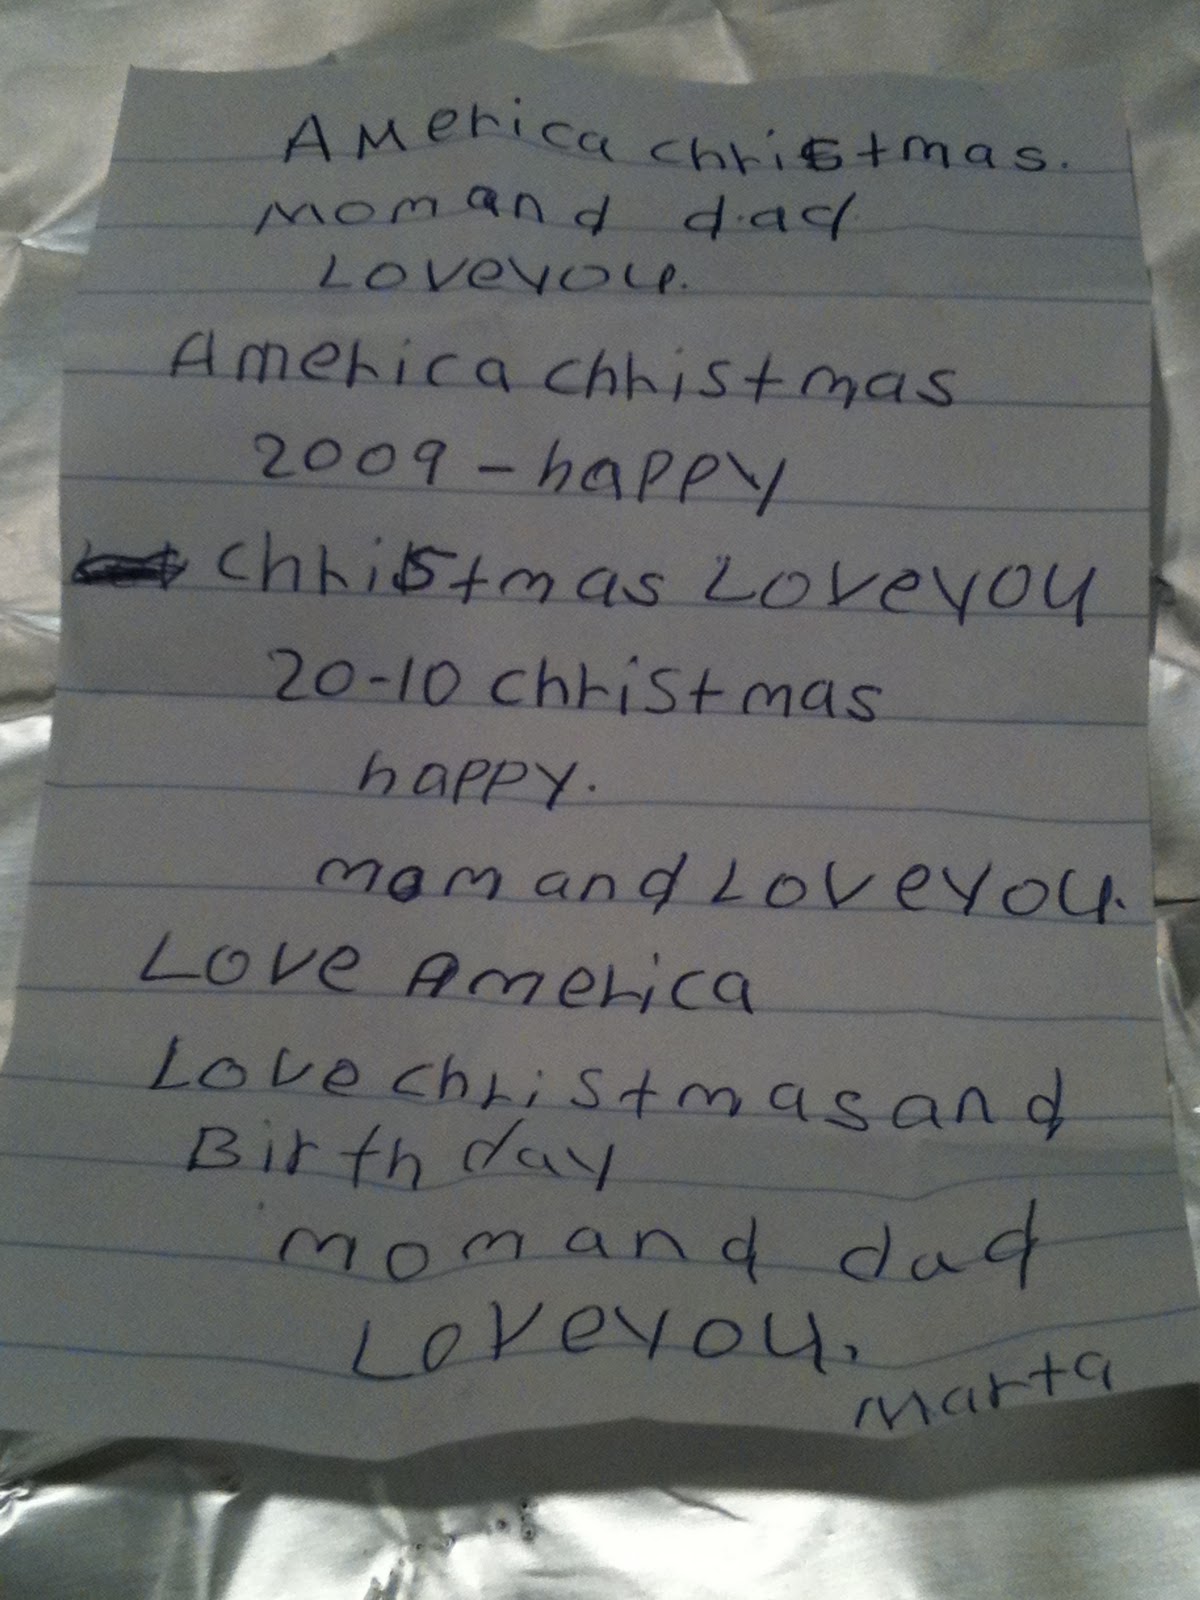 America christmas.
Mom and dad
Loveyou.
America christmas
2009 - happy
christmas Loveyou
20-10 christmas
happy.
mom and Loveyou.
Love America
Love christmas and
Birthday
mom and dad
Loveyou.
Marta